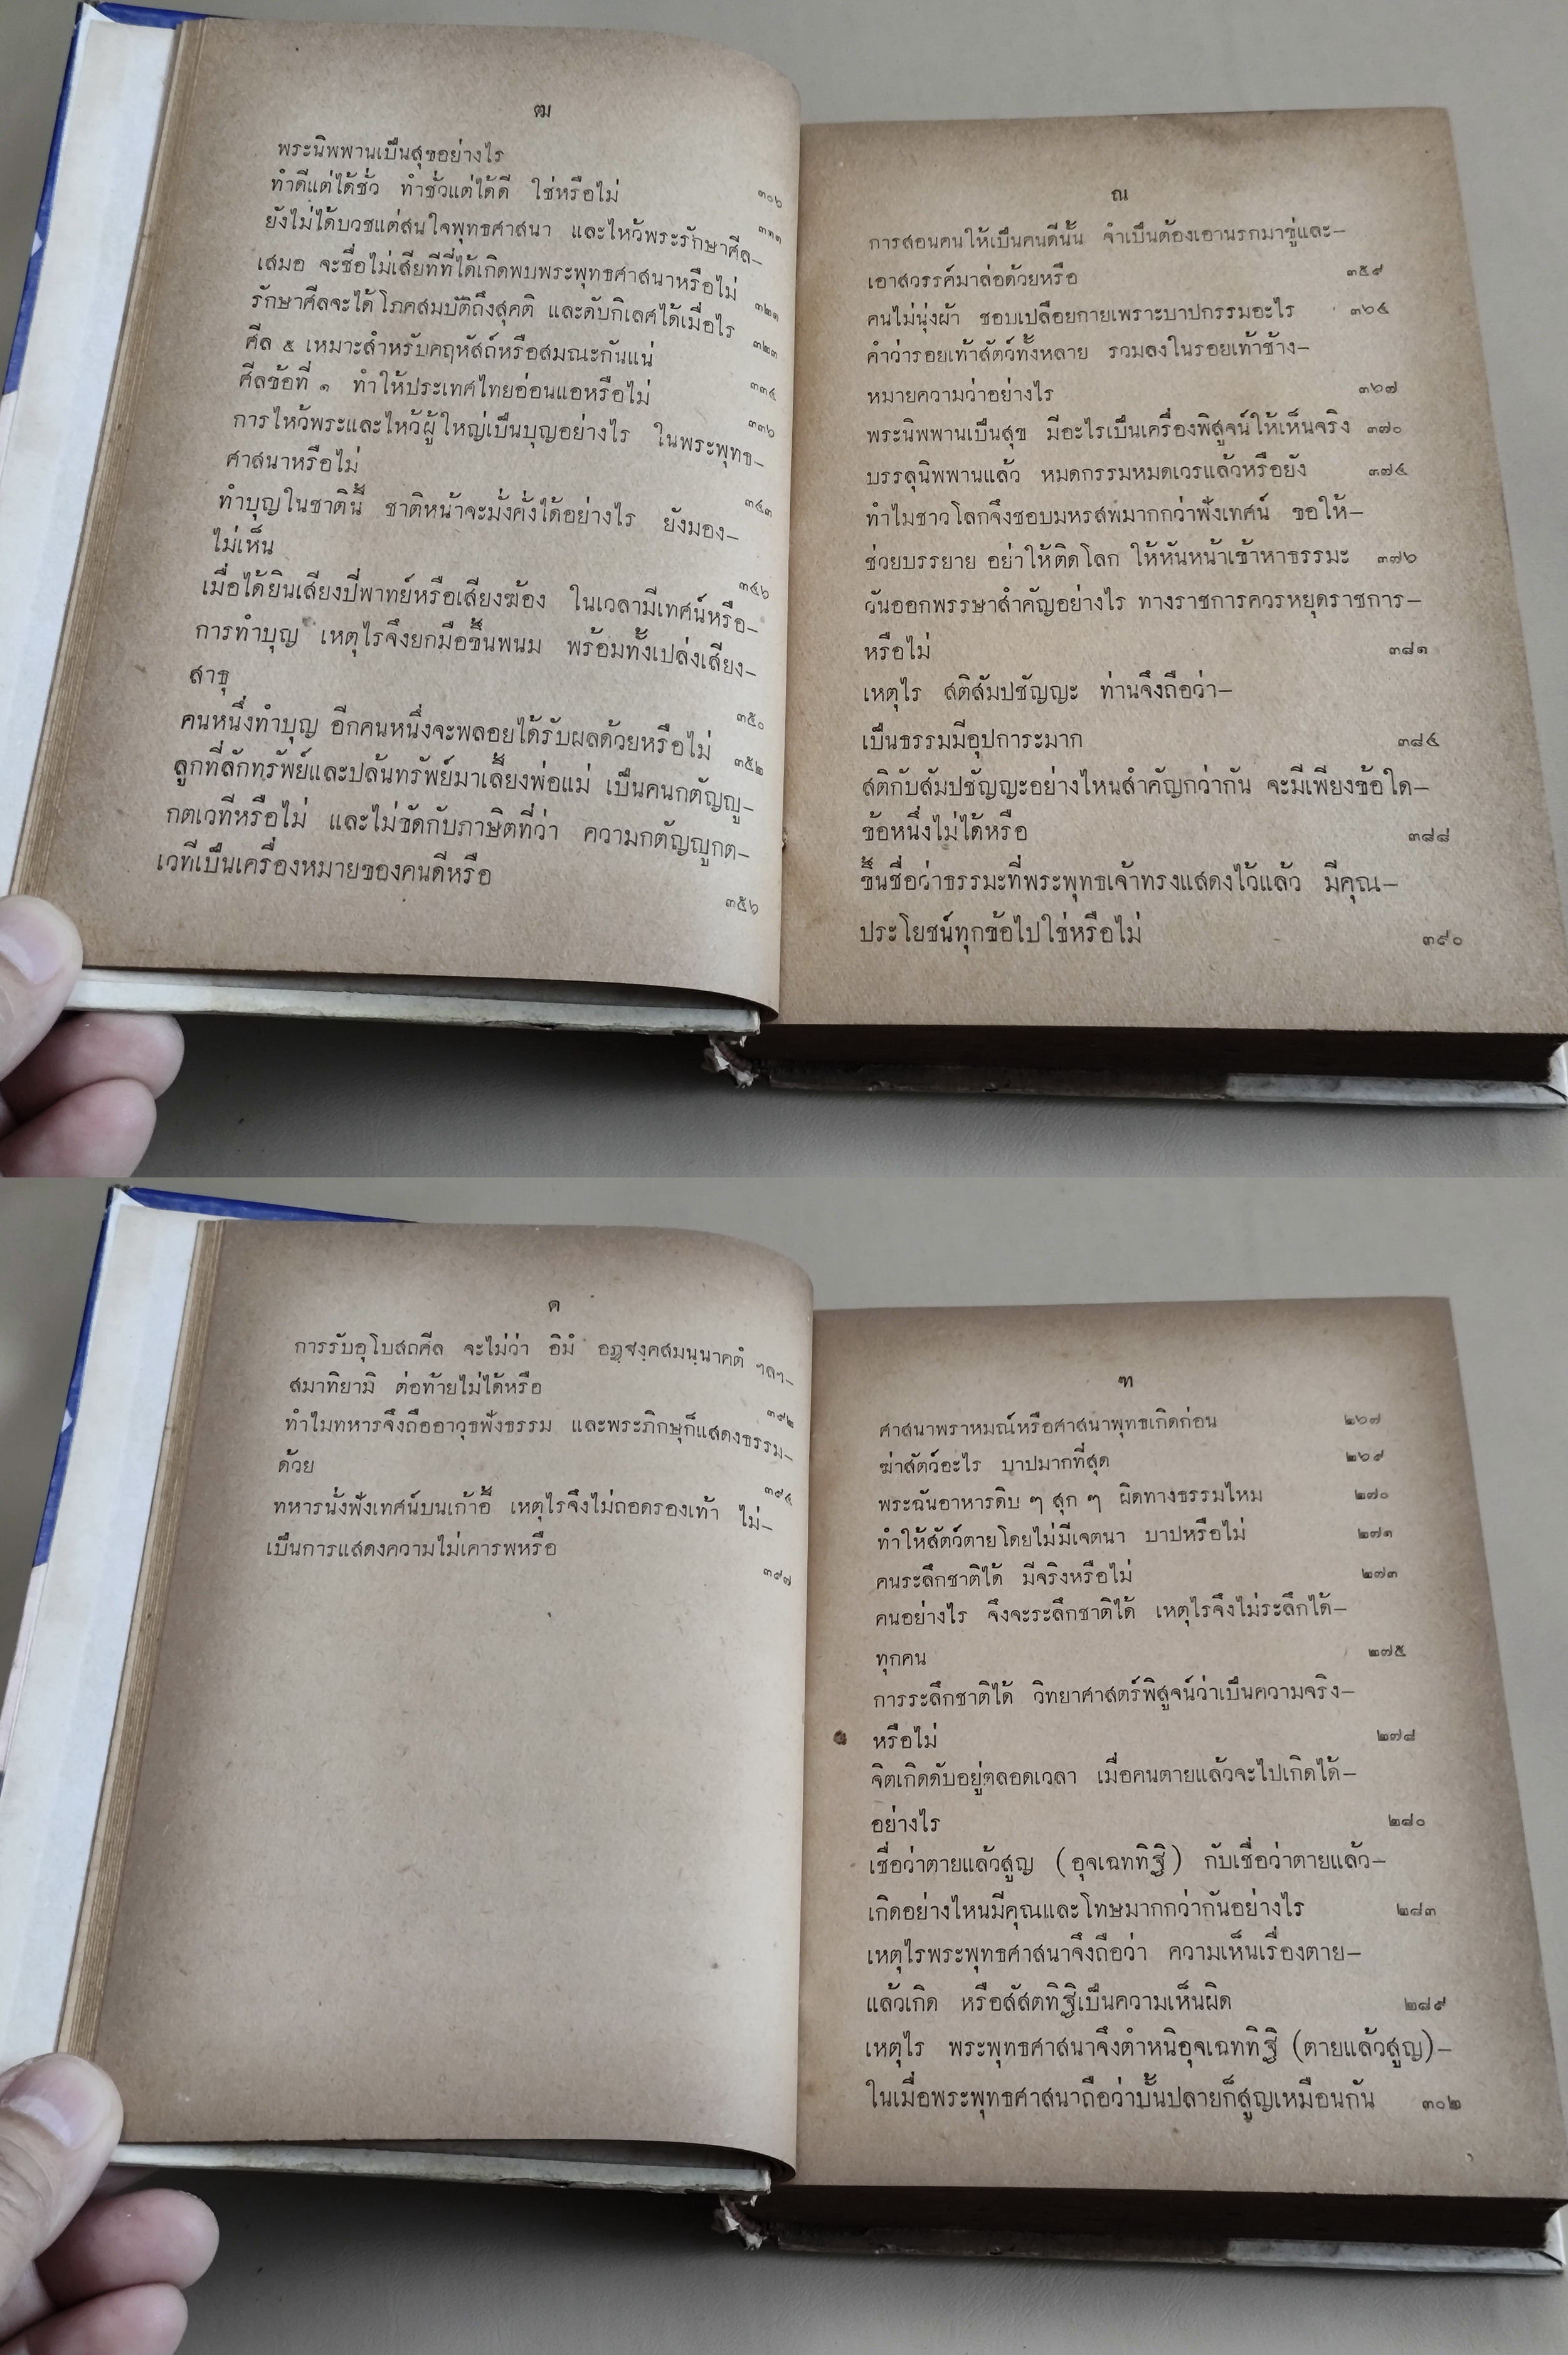 ฒ
พระนิพพานเป็นสุขอย่างไร ๓๐๖
ทำดีแต่ได้ชั่ว ทำชั่วแต่ได้ดี ใช่หรือไม่ ๓๑๑
ยังไม่ได้บวชแต่สนใจพุทธศาสนา และไหว้พระรักษาศีล–
เสมอ จะชื่อไม่เสียทีที่ได้เกิดพบพระพุทธศาสนาหรือไม่ ๓๒๑
รักษาศีลจะได้โภคสมบัติถึงสุคติ และดับกิเลศได้เมื่อไร ๓๒๓
ศีล ๕ เหมาะสำหรับคฤหัสถ์หรือสมณะกันแน่ ๓๓๔
ศีลข้อที่ ๑ ทำให้ประเทศไทยอ่อนแอหรือไม่ ๓๓๖
การไหว้พระและไหว้ผู้ใหญ่เป็นบุญอย่างไร ในพระพุทธ–
ศาสนาหรือไม่ ๓๔๓
ทำบุญในชาตินี้ ชาติหน้าจะมั่งคั่งได้อย่างไร ยังมอง–
ไม่เห็น ๓๔๖
เมื่อได้ยินเสียงปี่พาทย์หรือเสียงฆ้อง ในเวลามีเทศน์หรือ–
การทำบุญ เหตุไรจึงยกมือขึ้นพนม พร้อมทั้งเปล่งเสียง–
สาธุ ๓๕๐
คนหนึ่งทำบุญ อีกคนหนึ่งจะพลอยได้รับผลด้วยหรือไม่ ๓๕๒
ลูกที่ลักทรัพย์และปล้นทรัพย์มาเลี้ยงพ่อแม่ เป็นคนกตัญญู–
กตเวทีหรือไม่ และไม่ขัดกับภาษิตที่ว่า ความกตัญญูกต–
เวทีเป็นเครื่องหมายของคนดีหรือ ๓๕๖
ณ
การสอนคนให้เป็นคนดีนั้น จำเป็นต้องเอานรกมาขู่และ–
เอาสวรรค์มาล่อด้วยหรือ ๓๕๙
คนไม่นุ่งผ้า ชอบเปลือยกายเพราะบาปกรรมอะไร ๓๖๔
คำว่ารอยเท้าสัตว์ทั้งหลาย รวมลงในรอยเท้าช้าง–
หมายความว่าอย่างไร ๓๖๗
พระนิพพานเป็นสุข มีอะไรเป็นเครื่องพิสูจน์ให้เห็นจริง ๓๗๐
บรรลุนิพพานแล้ว หมดกรรมหมดเวรแล้วหรือยัง ๓๗๔
ทำไมชาวโลกจึงชอบมหรสพมากกว่าฟังเทศน์ ขอให้–
ช่วยบรรยาย อย่าให้ติดโลก ให้หันหน้าเข้าหาธรรมะ ๓๗๖
วันออกพรรษาสำคัญอย่างไร ทางราชการควรหยุดราชการ–
หรือไม่ ๓๘๑
เหตุไร สติสัมปชัญญะ ท่านจึงถือว่า–
เป็นธรรมมีอุปการะมาก ๓๘๔
สติกับสัมปชัญญะอย่างไหนสำคัญกว่ากัน จะมีเพียงข้อใด–
ข้อหนึ่งไม่ได้หรือ ๓๘๘
ขึ้นชื่อว่าธรรมะที่พระพุทธเจ้าทรงแสดงไว้แล้ว มีคุณ–
ประโยชน์ทุกข้อไปใช่หรือไม่ ๓๙๐
ด
การรับอุโบสถศีล จะไม่ว่า อิมํ อฏฺฐงฺคสมนฺนาคตํ ฯลฯ–
สมาทิยามิ ต่อท้ายไม่ได้หรือ ๓๙๒
ทำไมทหารจึงถืออาวุธฟังธรรม และพระภิกษุก็แสดงธรรม–
ด้วย ๓๙๔
ทหารนั่งฟังเทศน์บนเก้าอี้ เหตุไรจึงไม่ถอดรองเท้า ไม่–
เป็นการแสดงความไม่เคารพหรือ ๓๙๗
ฑ
ศาสนาพราหมณ์หรือศาสนาพุทธเกิดก่อน ๒๖๗
ฆ่าสัตว์อะไร บาปมากที่สุด ๒๖๙
พระฉันอาหารดิบ ๆ สุก ๆ ผิดทางธรรมไหม ๒๗๐
ทำให้สัตว์ตายโดยไม่มีเจตนา บาปหรือไม่ ๒๗๑
คนระลึกชาติได้ มีจริงหรือไม่ ๒๗๓
คนอย่างไร จึงจะระลึกชาติได้ เหตุไรจึงไม่ระลึกได้–
ทุกคน ๒๗๕
การระลึกชาติได้ วิทยาศาสตร์พิสูจน์ว่าเป็นความจริง–
หรือไม่ ๒๗๘
จิตเกิดดับอยู่ตลอดเวลา เมื่อคนตายแล้วจะไปเกิดได้–
อย่างไร ๒๘๐
เชื่อว่าตายแล้วสูญ (อุจเฉททิฐิ) กับเชื่อว่าตายแล้ว–
เกิดอย่างไหนมีคุณและโทษมากกว่ากันอย่างไร ๒๘๓
เหตุไรพระพุทธศาสนาจึงถือว่า ความเห็นเรื่องตาย–
แล้วเกิด หรือสัสตทิฐิเป็นความเห็นผิด ๒๘๙
เหตุไร พระพุทธศาสนาจึงตำหนิอุจเฉททิฐิ (ตายแล้วสูญ)–
ในเมื่อพระพุทธศาสนาถือว่าบั้นปลายก็สูญเหมือนกัน ๓๐๒